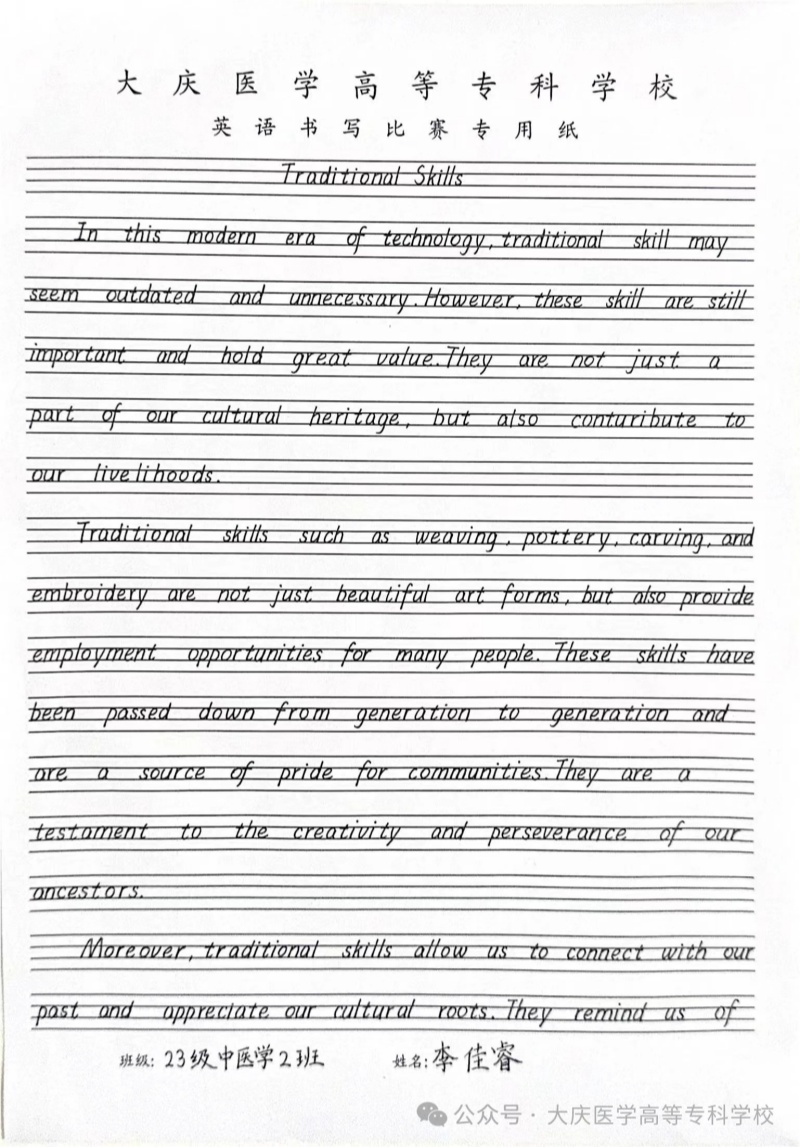 大庆医学高等专科学校
英语书写比赛专用纸
Traditional Skills
In this modern era of technology, traditional skill may
seem outdated and unnecessary. However, these skill are still
important and hold great value. They are not just a
part of our cultural heritage, but also conturibute to
our livelihoods.
Traditional skills such as weaving, pottery, carving, and
embroidery are not just beautiful art forms, but also provide
employment opportunities for many people. These skills have
been passed down from generation to generation and
are a source of pride for communities. They are a
testament to the creativity and perseverance of our
ancestors.
Moreover, traditional skills allow us to connect with our
past and appreciate our cultural roots. They remind us of
班级: 23级中医学2班 姓名: 李佳睿
公众号 · 大庆医学高等专科学校